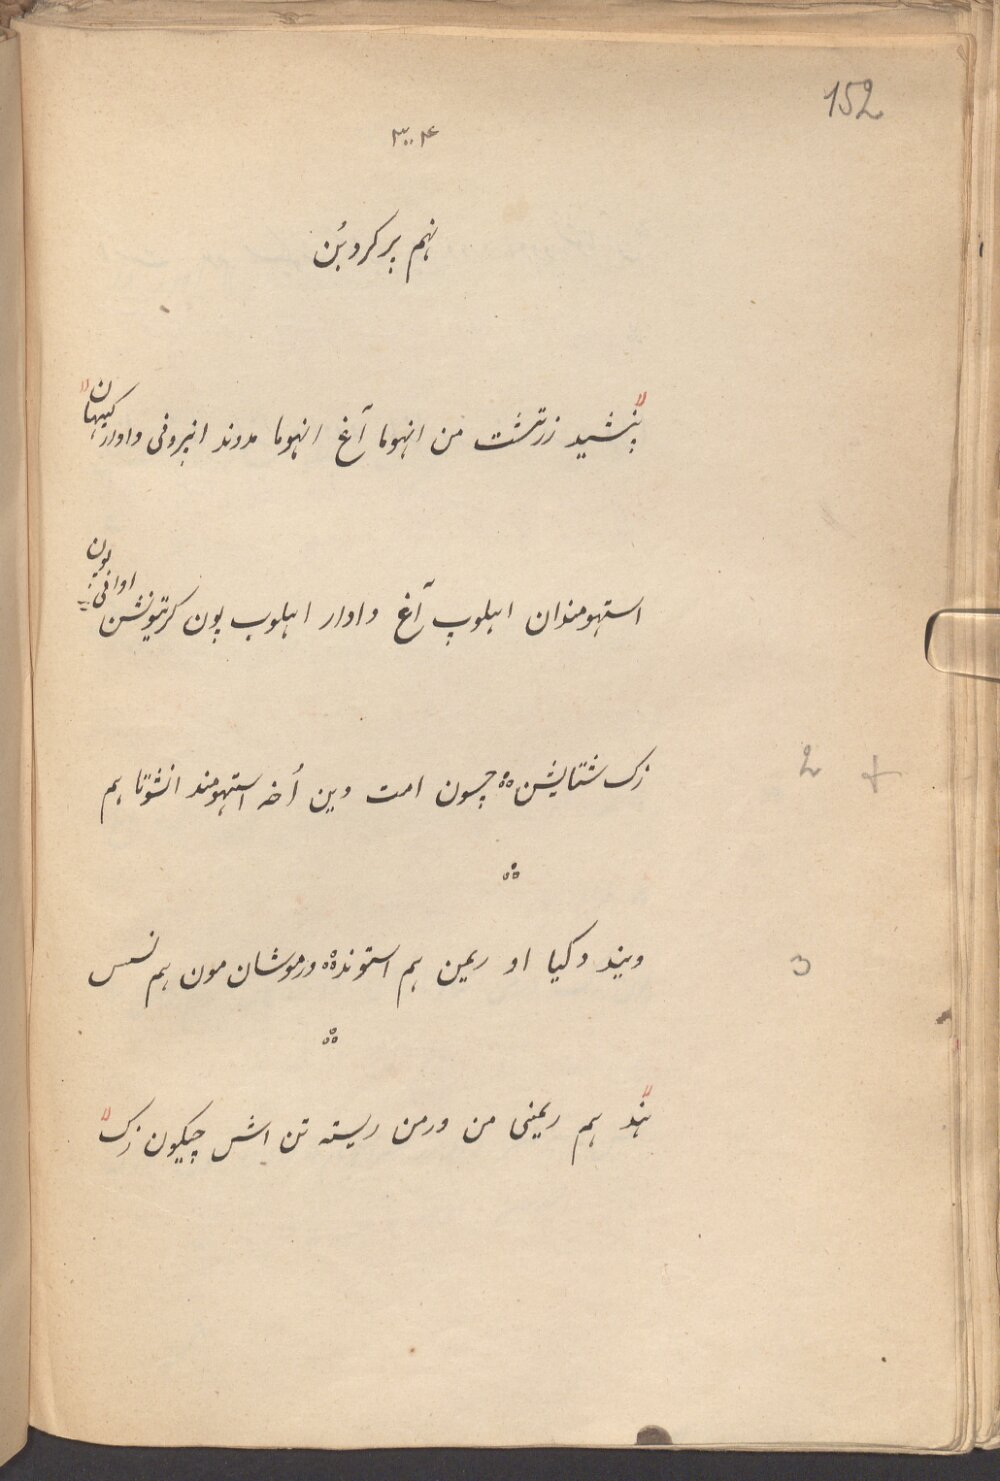 152
۳۰۴
نهم پرکرد بُن
پنشید زرتشت من انهوما آغ انهوما مدوند انبروفی دادار کیهان
استهومندان اهلوب آغ دادار اهلوب پون کرتیونشن اوافی بون
زک شتایشن چسون امت وین اُخه استهومند انشوتا هم
2 +
ویند دکیا او ریمین هم استوند ورموشان مون هم نسس
3
هند هم ریمنی من ورمن ریسته تن اش چیکون زک